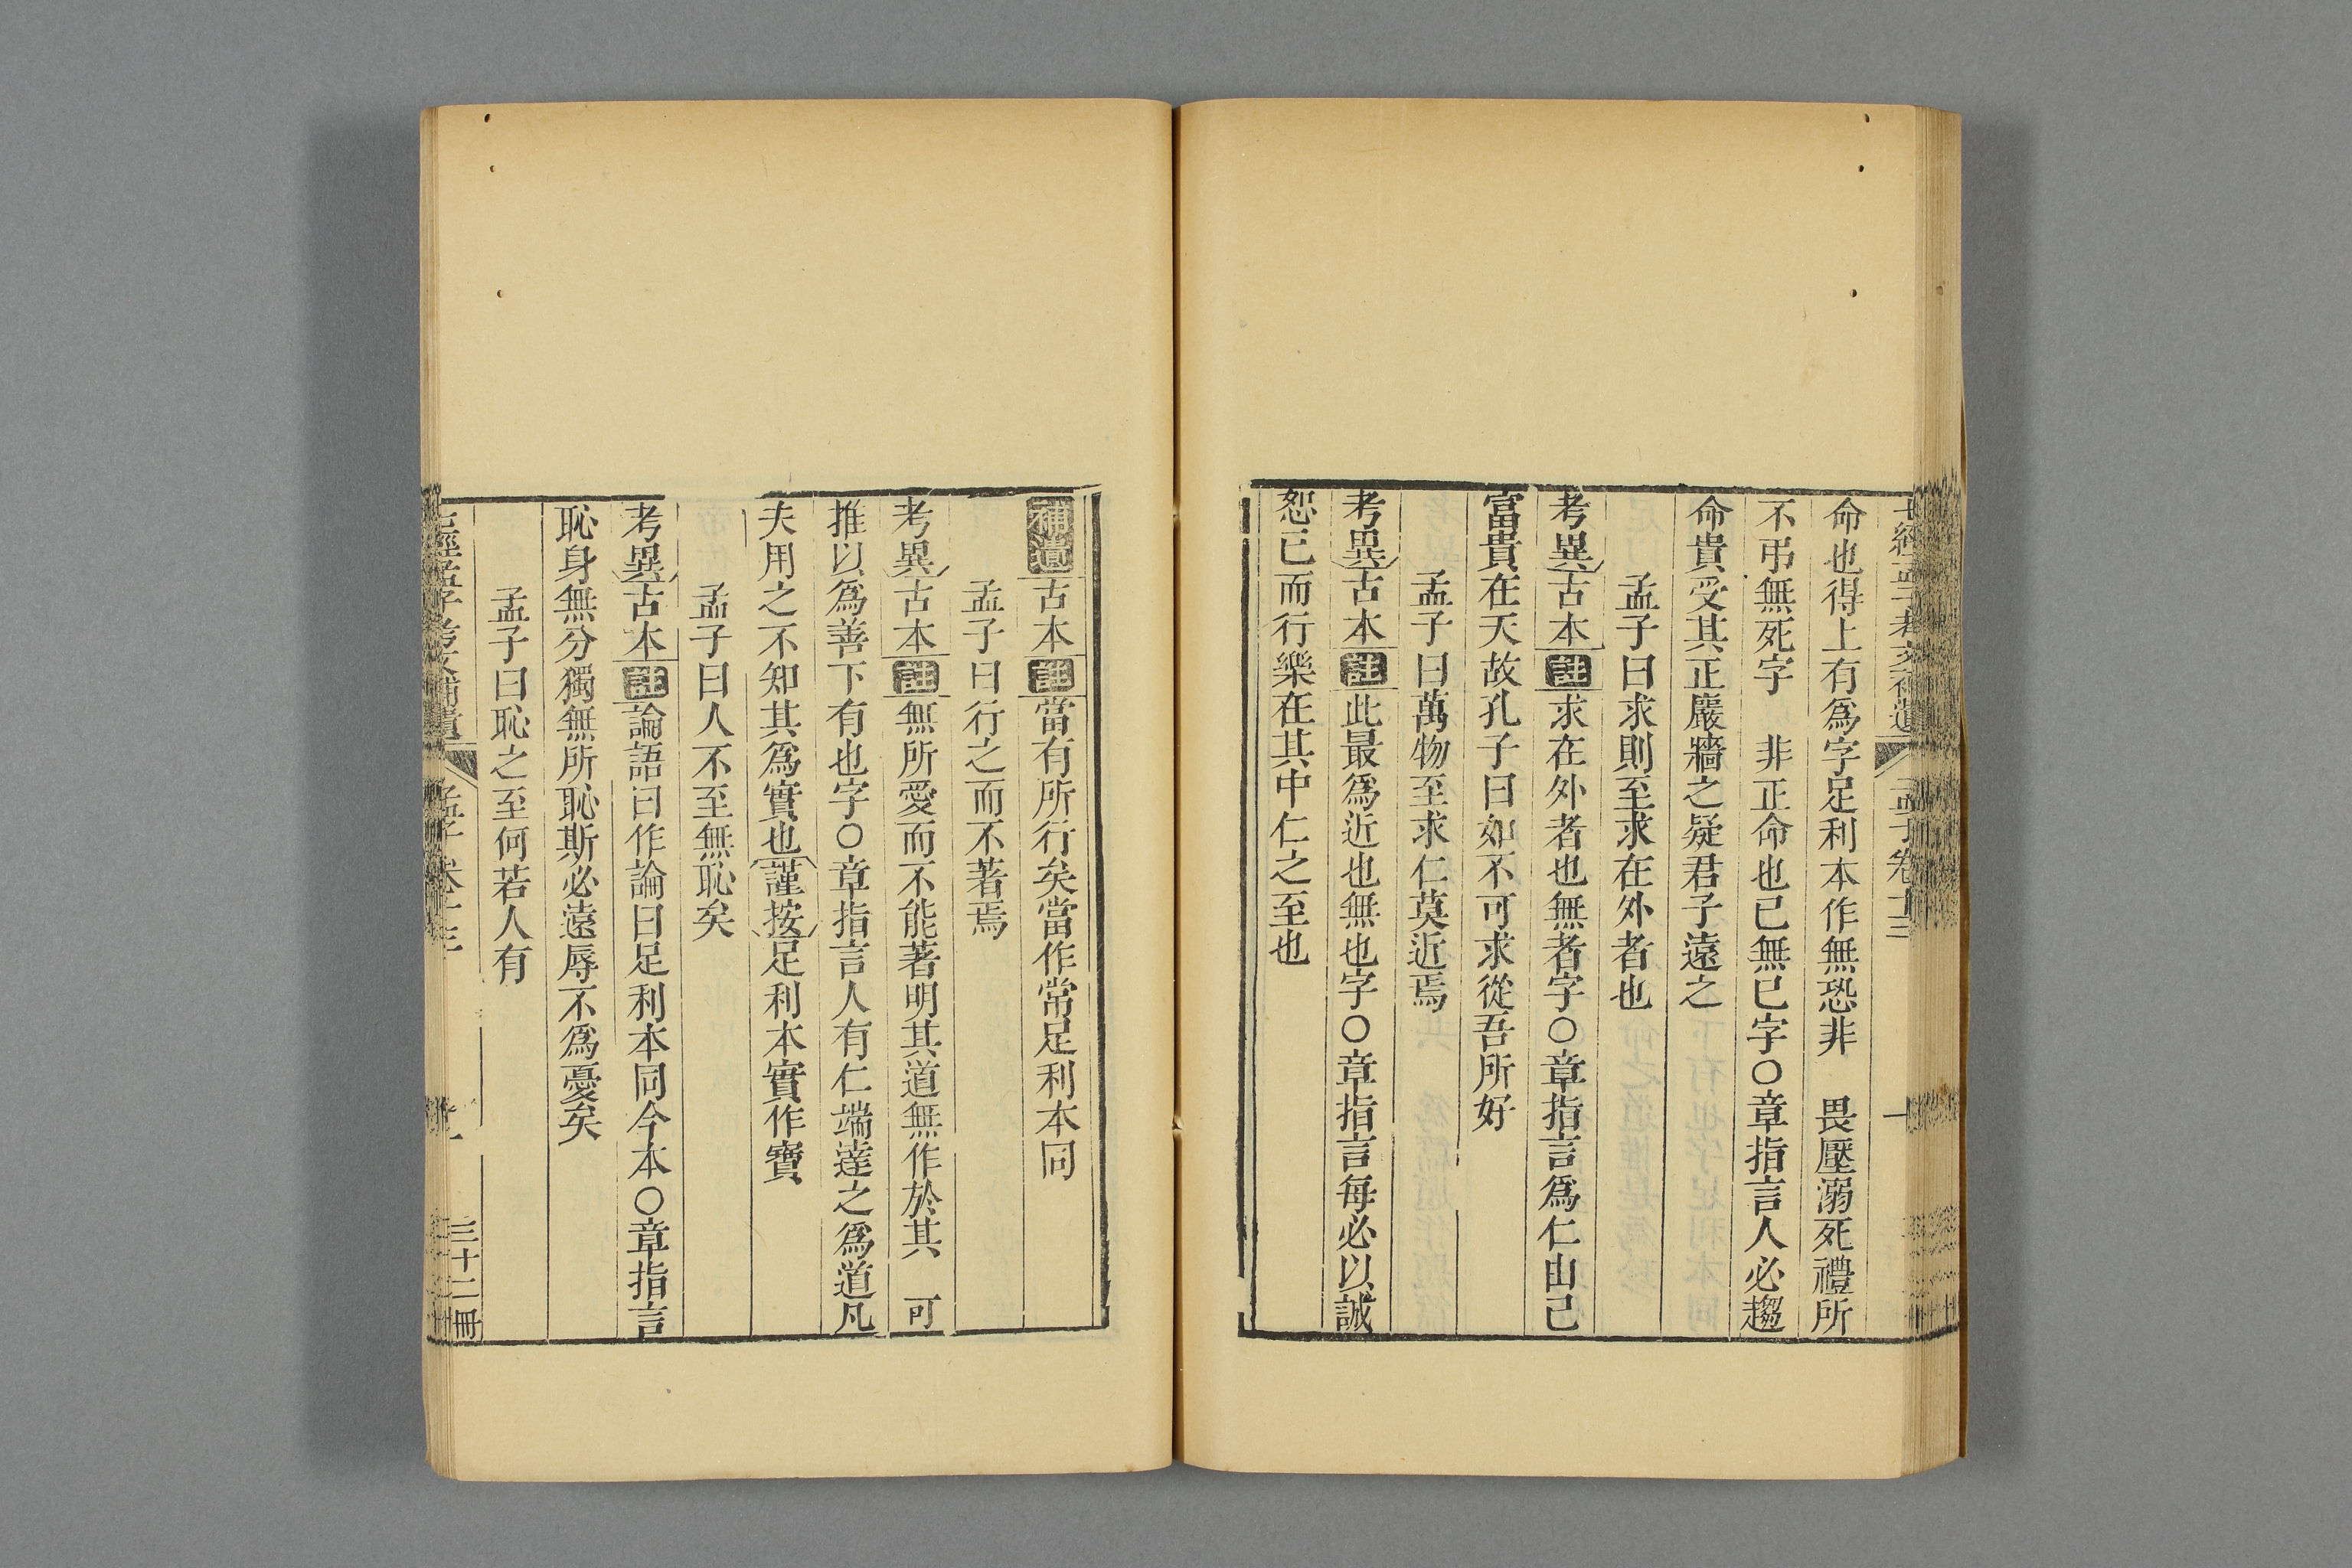 命也得上有爲字足利本作無恐非　畏壓溺死禮所
不弔無死字　非正命也已無已字〇章指言人必趨
命貴受其正巖牆之疑君子遠之
孟子曰求則至求在外者也
考異古本註求在外者也無者字〇章指言爲仁由己
富貴在天故孔子曰如不可求從吾所好
孟子曰萬物至求仁莫近焉
考異古本註此最爲近也無也字〇章指言每必以誠
恕已而行樂在其中仁之至也
補遺古本註當有所行矣當作常足利本同
孟子曰行之而不著焉
考異古本註無所愛而不能著明其道無作於其　可
推以爲善下有也字〇章指言人有仁端達之爲道凡
夫用之不知其爲實也謹按足利本實作寶
孟子曰人不至無恥矣
考異古本註論語曰作論曰足利本同今本〇章指言
恥身無分獨無所恥斯必遠辱不爲憂矣
孟子曰恥之至何若人有
三十二冊